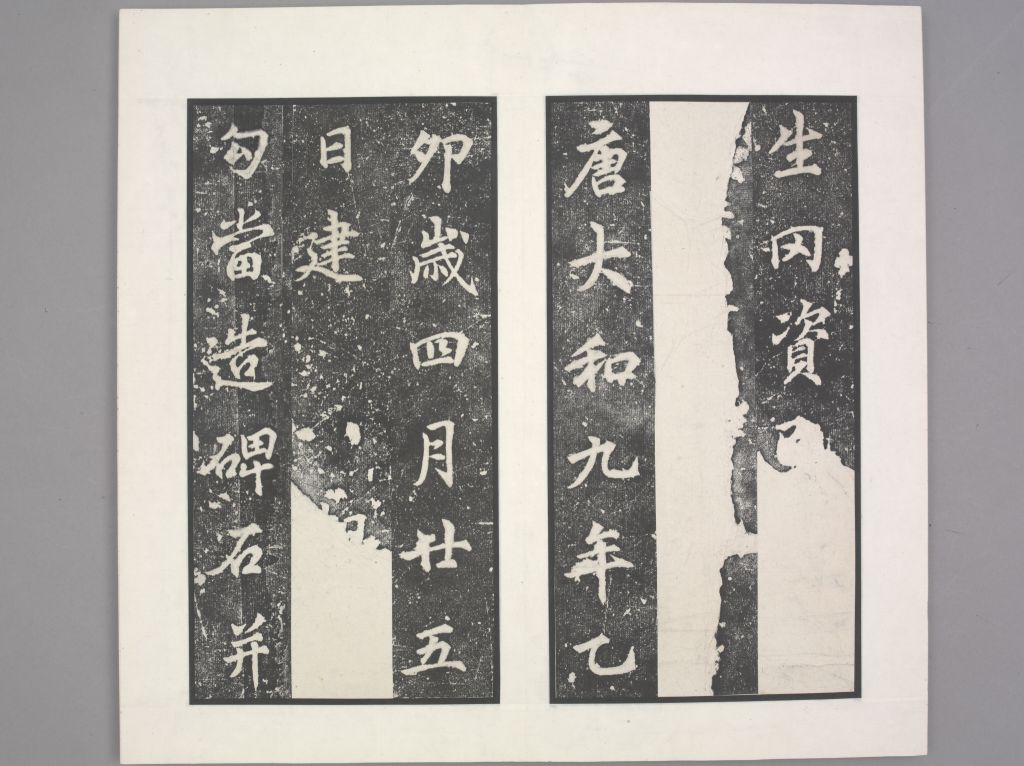 生罔資
唐大和九年乙
卯歲四月廿五
日建
勾當造碑石并